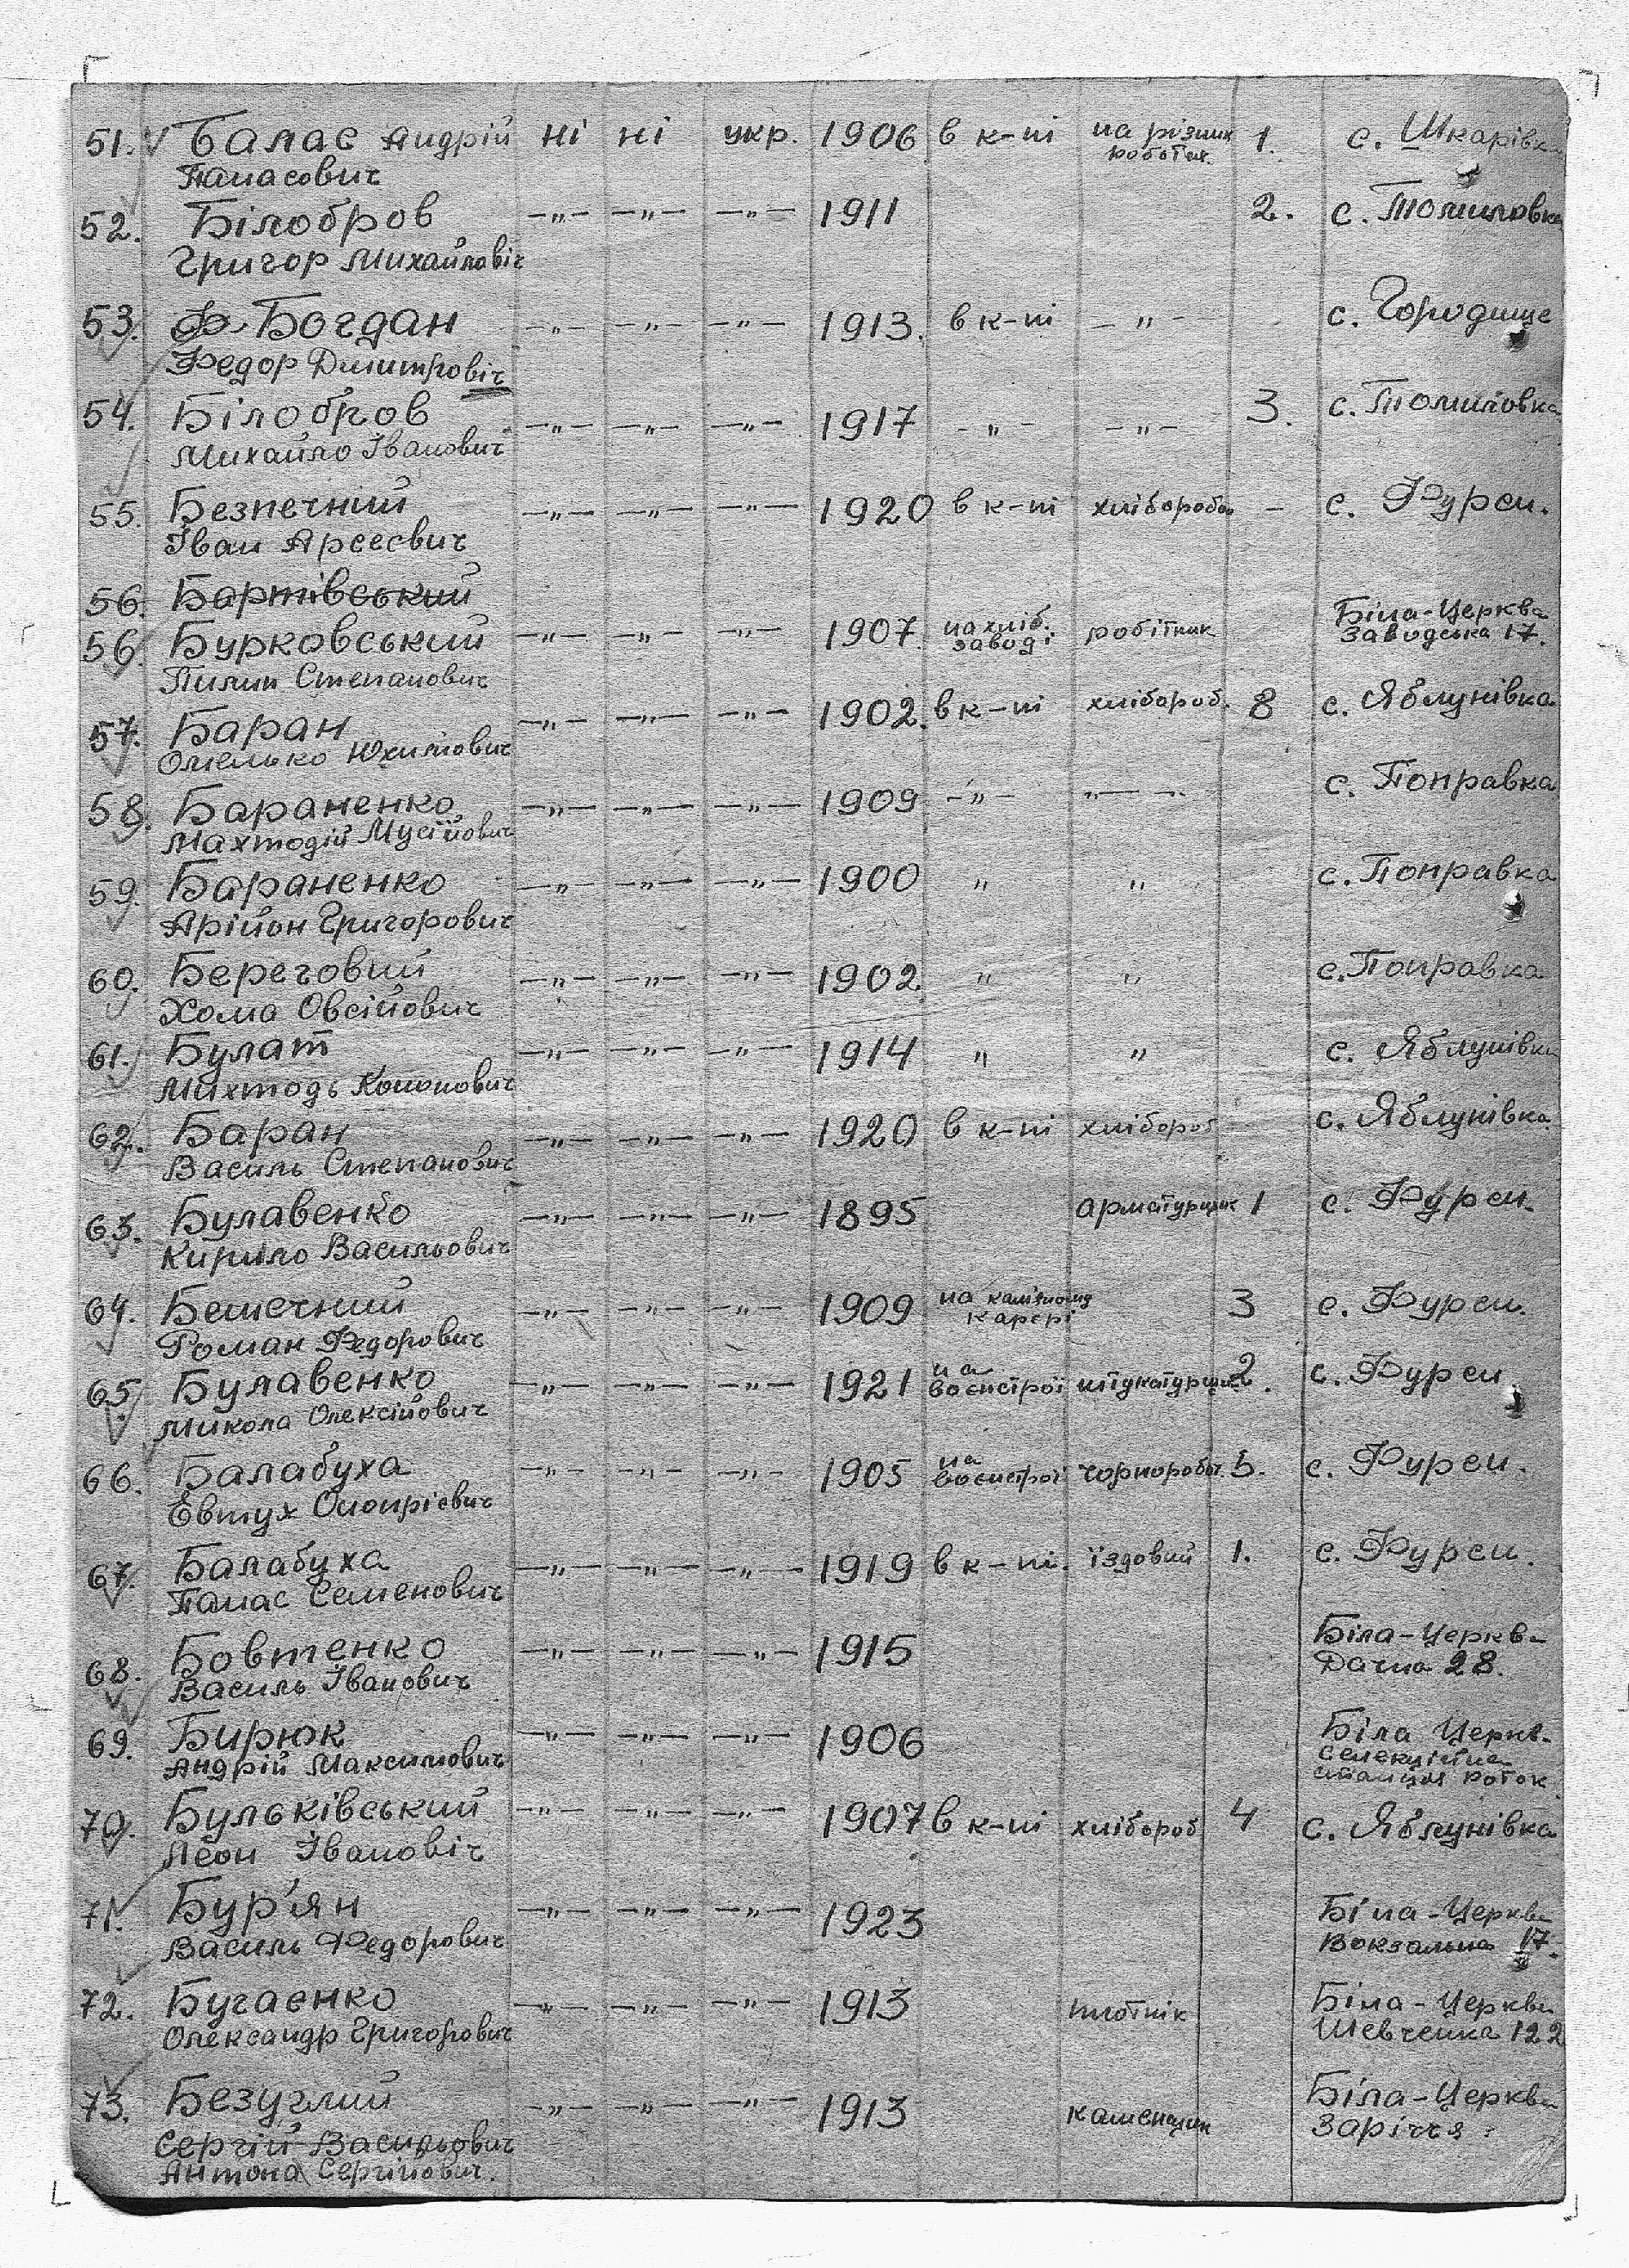 51. Балас Андрій ні ні укр. 1906 в к-пі на різних 1. с. Шкарівка
Панасович роботах.
52. Білобров —"— —"— —"— 1911 2. с. Томиловка
Григор Михайловіч
53. Богдан —"— —"— —"— 1913. в к-пі —"— с. Городище
Федор Дмитровіч
54. Білобров —"— —"— —"— 1917 —"— —"— 3. с. Томиловка
Михайло Іванович
55. Безпечний —"— —"— —"— 1920 в к-пі хлібороб — с. Фурси.
Іван Арсесвич
56. Бартівський
56. Бурковський —"— —"— —"— 1907. на хліб. заводі робітник Біла-Церква Заводська 17.
Пилип Степанович
57. Баран —"— —"— —"— 1902. в к-пі хлібороб. 8 с. Яблунівка
Омелько Юхимович
58. Бараненко —"— —"— —"— 1909 —"— —"— с. Поправка
Махтодій Мусійович
59. Бараненко —"— —"— —"— 1900 " " с. Поправка
Арійон Григорович
60. Береговий —"— —"— —"— 1902. " " с. Поправка
Хома Овсійович
61. Булат —"— —"— —"— 1914 " " с. Яблунівка
Михтодь Кононович
62. Баран —"— —"— —"— 1920 в к-пі хлібороб с. Яблунівка.
Василь Степанович
63. Булавенко —"— —"— —"— 1895 арматурщик 1 с. Фурси.
Кирило Васильович
64. —"— —"— —"— 1909 на камяному карєрі 3 с. Фурси.
Роман Федорович
65. Булавенко —"— —"— —"— 1921 на воєнстрої штукатурщик 2. с. Фурси.
Микола Олексійович
66. Балабуха —"— —"— —"— 1905 на воєнстрої чорнороб. 5. с. Фурси.
Евтух Онопрієвич
67. Балабуха —"— —"— —"— 1919 в к-пі. їздовий 1. с. Фурси.
Панас Семенович
68. Бовтенко —"— —"— —"— 1915 Біла-Церква
Василь Іванович Дачна 28.
69. Бирюк —"— —"— —"— 1906 Біла Церкв.
Андрій Максимович Селекційна
станція Роток
70. Бульківський —"— —"— —"— 1907 в к-пі хлібороб 4 с. Яблунівка
Леон Івановіч
71. Бур'ян —"— —"— —"— 1923 Біла-Церква
Василь Федорович Вокзальна 17.
72. Бугаєнко —"— —"— —"— 1913 плотнік Біла-Церква
Олександр Григорович Шевченка 122
73. Безуглий —"— —"— —"— 1913 каменщик Біла-Церква
Сергій Васильович Заріччя.
Антона Сергійович.